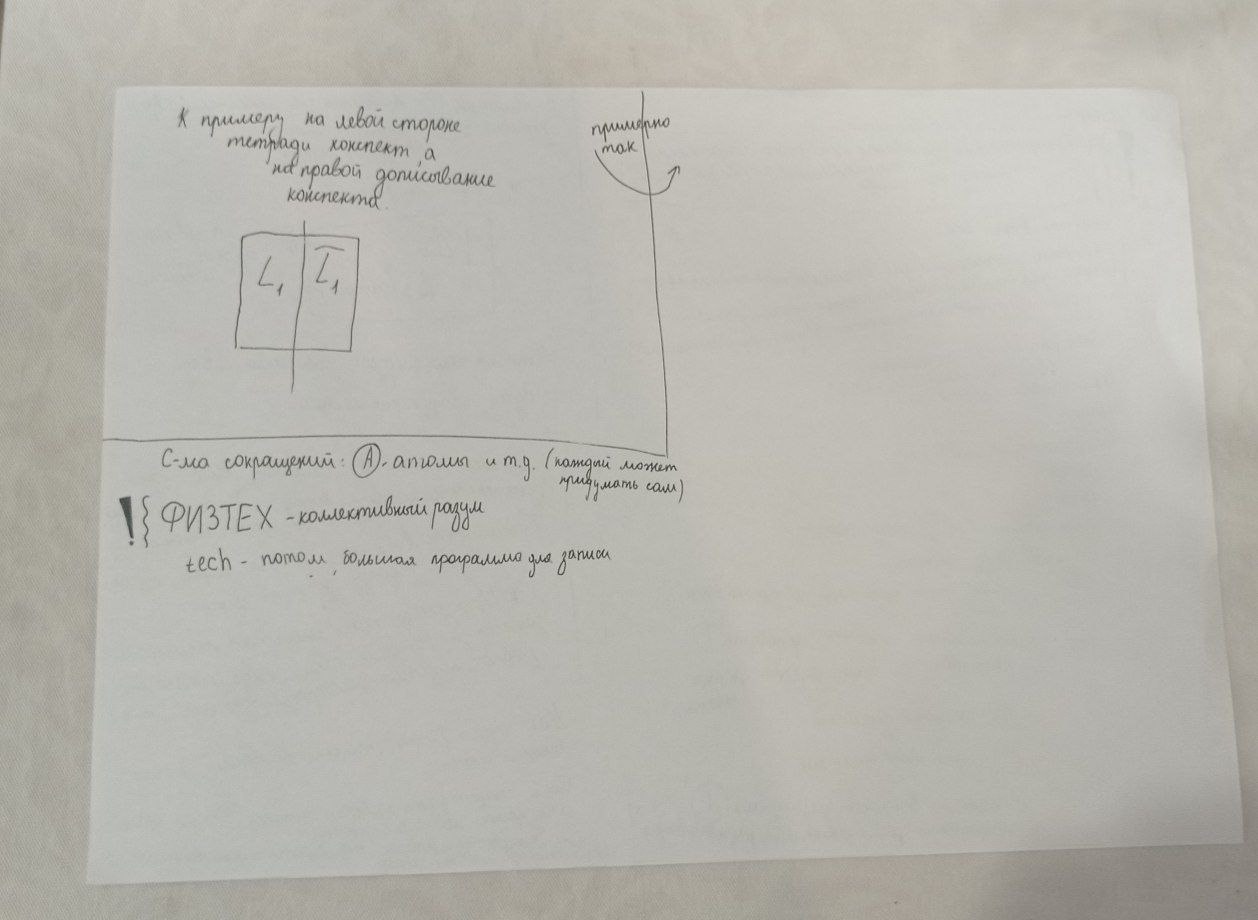 К примеру на левой стороне
тетради конспект, а
на правой дописывание
конспекта.
примерно
так
L₁ L̅₁
С-ма сокращений: (А)- атомы и т.д. (каждый может
придумать сам)
! { ФИЗТЕХ - коллективный разум
tech - потом, большая программа для записи